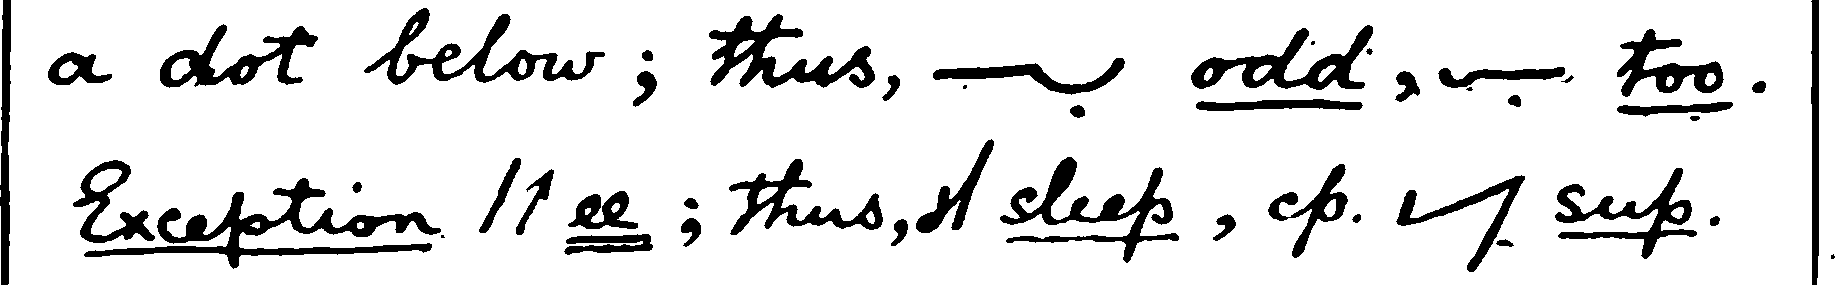 a dot below; thus, odd, too.
Exception ee; thus, sleep, cp. sup.